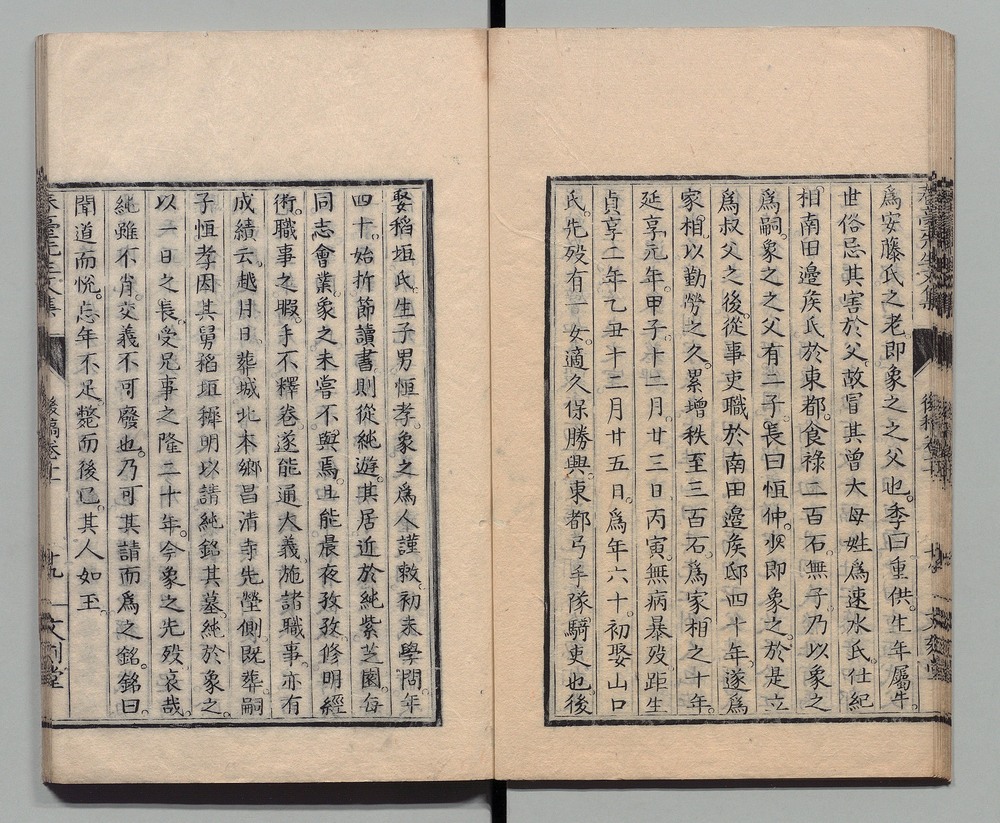 爲安藤氏之老。即象之之父也。季曰重供。生年屬牛。
世俗忌其害於父。故冒其曾大母姓爲速水氏。仕紀
相南田邉矦氏於東都。食祿二百石。無子。乃以象之
爲嗣。象之之父有二子。長曰恒仲。少即象之。於是立
爲叔父之後。從事吏職於南田邉矦邸四十年。遂爲
家相。以勤勞之久。累增秩至三百石。爲家相之十年。
延享元年。甲子。十二月。廿三日丙寅。無病暴歿。距生
貞享二年乙丑十二月廿五日。爲年六十。初娶山口
氏。先歿。有一女。適久保勝興。東都弓手隊騎吏也。後
娶稻垣氏。生子男恒孝。象之爲人謹敕。初未學問。年
四十。始折節讀書。則從純遊。其居近於純紫芝園。每
同志會業。象之未嘗不與焉。且能晨夜孜孜。修明經
術。職事之暇。手不釋卷。遂能通大義。施諸職事。亦有
成績云。越月日。葬城北本鄉昌清寺先塋側。既葬。嗣
子恒孝因其舅稻垣穉明以請純銘其墓。純於象之。
以一日之長。受兄事之隆二十年。今象之先歿。哀哉。
純雖不肖。交義不可廢也。乃可其請而爲之銘。銘曰。
聞道而悅。忘年不足。斃而後已。其人如玉
春臺先生文集 後稿卷十一 十九 文刻堂